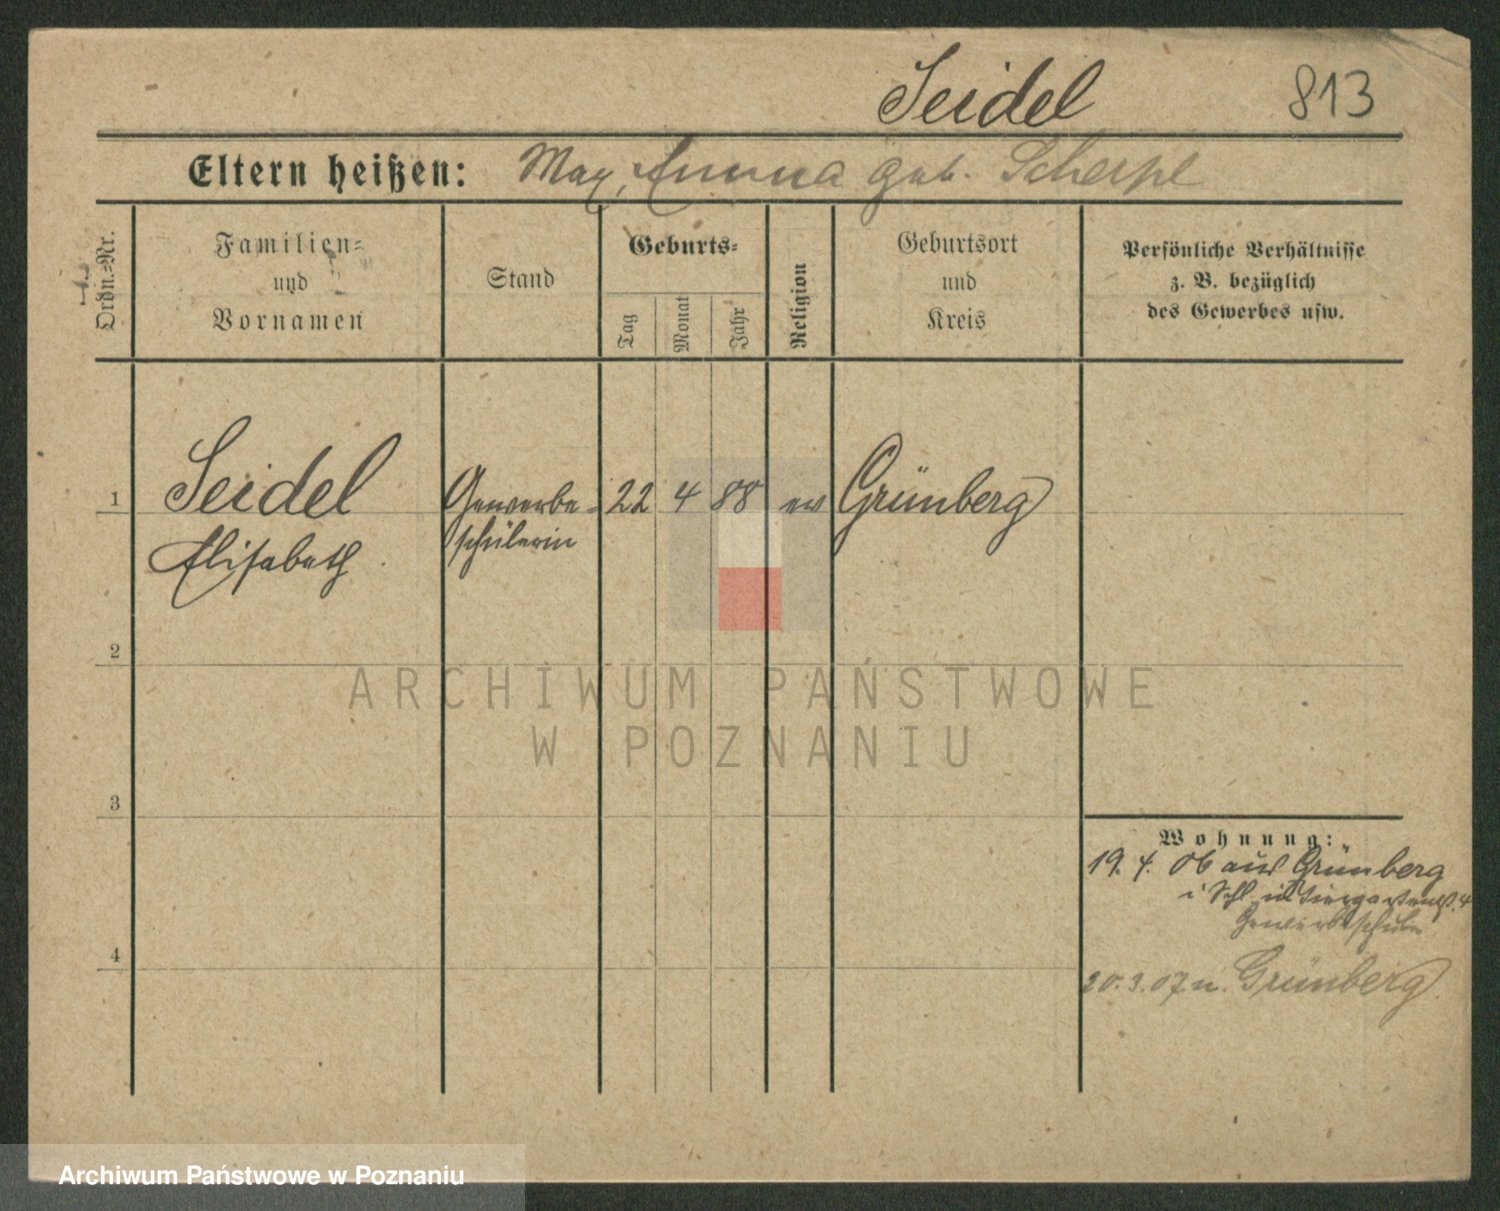 Seidel 813
Eltern heißen: Max, Emma geb. Scherpe
Ordn.-Nr.
Familien-
und
Vornamen
Stand
Geburts-
Tag
Monat
Jahr
Religion
Geburtsort
und
Kreis
Persönliche Verhältnisse
z. B. bezüglich
des Gewerbes usw.
1 Seidel Gewerbe- 22 4 88 ev Grünberg
Elisabeth schülerin
2
ARCHIWUM PAŃSTWOWE
W POZNANIU
3
Wohnung:
19. 4. 06 aus Grünberg
i Schl. in Tiergartenstr. 4
Gewerbeschule
4
20. 3. 07 n. Grünberg.
Archiwum Państwowe w Poznaniu